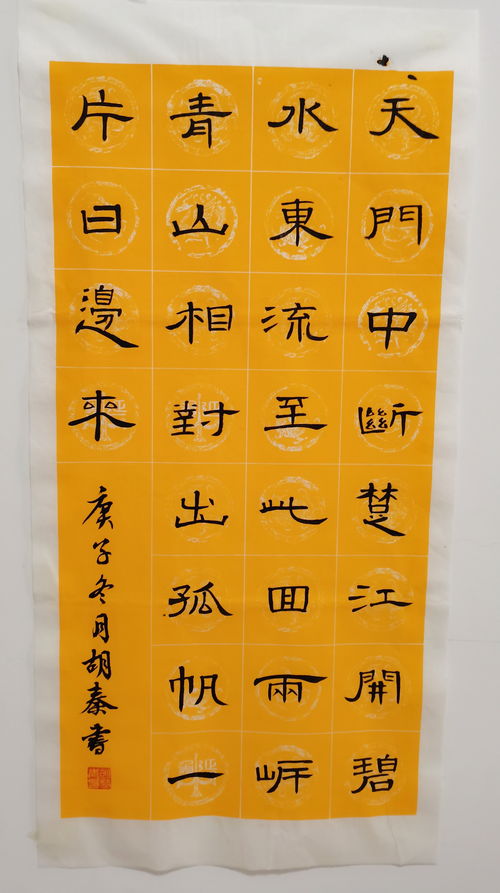 天門中斷楚江開碧
水東流至此回兩岸
青山相對出孤帆一
片日邊來
庚子冬月胡秦書